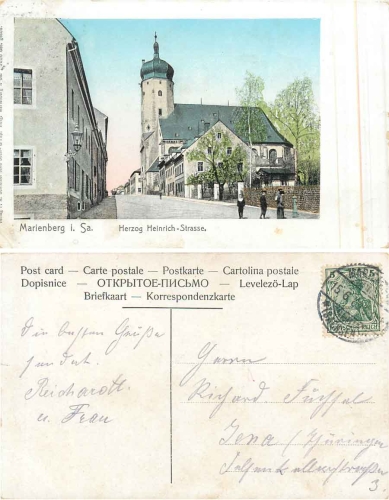 Marienberg i. Sa. Herzog Heinrich-Strasse.
Post card — Carte postale — Postkarte — Cartolina postale
Dopisnice — ОТКРЫТОЕ-ПИСЬМО — Levelező-Lap
Briefkaart — Korrespondenzkarte
Die besten Grüße
sendet
Reichardt
u. Frau
Herrn
Richard Füchsel
Jena (Thüringen
3
5